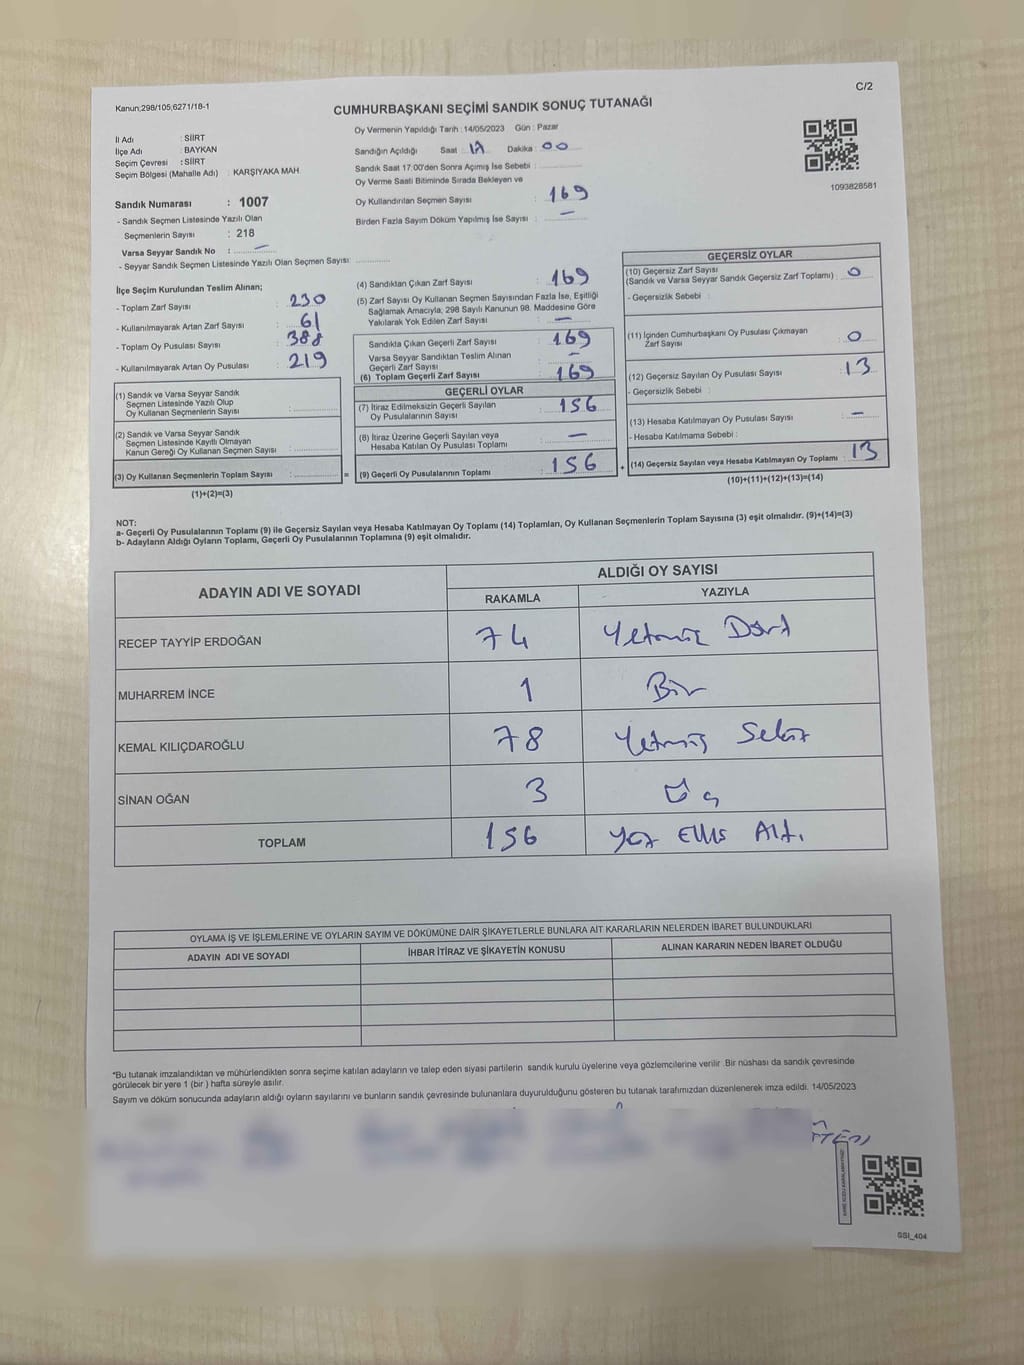 C/2
Kanun;298/105;6271/18-1
CUMHURBAŞKANI SEÇİMİ SANDIK SONUÇ TUTANAĞI
Oy Vermenin Yapıldığı Tarih :14/05/2023 Gün : Pazar
Sandığın Açıldığı Saat : 17 Dakika : 00
Sandık Saat 17:00'den Sonra Açımış İse Sebebi :
Oy Verme Saati Bitiminde Sırada Bekleyen ve
Oy Kullandırılan Seçmen Sayısı : 169
Birden Fazla Sayım Döküm Yapılmış İse Sayısı : —
1093828581
İl Adı : SİİRT
İlçe Adı : BAYKAN
Seçim Çevresi : SİİRT
Seçim Bölgesi (Mahalle Adı) : KARŞIYAKA MAH
Sandık Numarası : 1007
- Sandık Seçmen Listesinde Yazılı Olan
Seçmenlerin Sayısı : 218
Varsa Seyyar Sandık No : —
- Seyyar Sandık Seçmen Listesinde Yazılı Olan Seçmen Sayısı:
İlçe Seçim Kurulundan Teslim Alınan;
- Toplam Zarf Sayısı : 230
- Kullanılmayarak Artan Zarf Sayısı : 61
- Toplam Oy Pusulası Sayısı : 388
- Kullanılmayarak Artan Oy Pusulası : 219
(1) Sandık ve Varsa Seyyar Sandık
Seçmen Listesinde Yazılı Olup
Oy Kullanan Seçmenlerin Sayısı :
(2) Sandık ve Varsa Seyyar Sandık
Seçmen Listesinde Kayıtlı Olmayan
Kanun Gereği Oy Kullanan Seçmen Sayısı :
(3) Oy Kullanan Seçmenlerin Toplam Sayısı : =
(1)+(2)=(3)
(4) Sandıktan Çıkan Zarf Sayısı : 169
(5) Zarf Sayısı Oy Kullanan Seçmen Sayısından Fazla İse, Eşitliği
Sağlamak Amacıyla; 298 Sayılı Kanunun 98. Maddesine Göre
Yakılarak Yok Edilen Zarf Sayısı : —
Sandıkta Çıkan Geçerli Zarf Sayısı : 169
Varsa Seyyar Sandıktan Teslim Alınan
Geçerli Zarf Sayısı : —
(6) Toplam Geçerli Zarf Sayısı : 169
GEÇERLİ OYLAR
(7) İtiraz Edilmeksizin Geçerli Sayılan
Oy Pusulalarının Sayısı : 156
(8) İtiraz Üzerine Geçerli Sayılan veya
Hesaba Katılan Oy Pusulası Toplamı : —
(9) Geçerli Oy Pusulalarının Toplamı : 156 +
GEÇERSİZ OYLAR
(10) Geçersiz Zarf Sayısı
(Sandık ve Varsa Seyyar Sandık Geçersiz Zarf Toplamı) : 0
- Geçersizlik Sebebi :
(11) İçinden Cumhurbaşkanı Oy Pusulası Çıkmayan
Zarf Sayısı : 0
(12) Geçersiz Sayılan Oy Pusulası Sayısı : 13
- Geçersizlik Sebebi :
(13) Hesaba Katılmayan Oy Pusulası Sayısı : —
- Hesaba Katılmama Sebebi :
(14) Geçersiz Sayılan veya Hesaba Katılmayan Oy Toplamı : 13
(10)+(11)+(12)+(13)=(14)
NOT:
a- Geçerli Oy Pusulalarının Toplamı (9) ile Geçersiz Sayılan veya Hesaba Katılmayan Oy Toplamı (14) Toplamları, Oy Kullanan Seçmenlerin Toplam Sayısına (3) eşit olmalıdır. (9)+(14)=(3)
b- Adayların Aldığı Oyların Toplamı, Geçerli Oy Pusulalarının Toplamına (9) eşit olmalıdır.
ADAYIN ADI VE SOYADI ALDIĞI OY SAYISI
RAKAMLA YAZIYLA
RECEP TAYYİP ERDOĞAN 74 Yetmiş Dört
MUHARREM İNCE 1 Bir
KEMAL KILIÇDAROĞLU 78 Yetmiş Sekiz
SİNAN OĞAN 3 Üç
TOPLAM 156 Yüz Elli Altı
OYLAMA İŞ VE İŞLEMLERİNE VE OYLARIN SAYIM VE DÖKÜMÜNE DAİR ŞİKAYETLERLE BUNLARA AİT KARARLARIN NELERDEN İBARET BULUNDUKLARI
ADAYIN ADI VE SOYADI İHBAR İTİRAZ VE ŞİKAYETİN KONUSU ALINAN KARARIN NEDEN İBARET OLDUĞU
*Bu tutanak imzalandıktan ve mühürlendikten sonra seçime katılan adayların ve talep eden siyasi partilerin sandık kurulu üyelerine veya gözlemcilerine verilir .Bir nüshası da sandık çevresinde
görülecek bir yere 1 (bir ) hafta süreyle asılır.
Sayım ve döküm sonucunda adayların aldığı oyların sayılarını ve bunların sandık çevresinde bulunanlara duyurulduğunu gösteren bu tutanak tarafımızdan düzenlenerek imza edildi. 14/05/2023
GSI_404